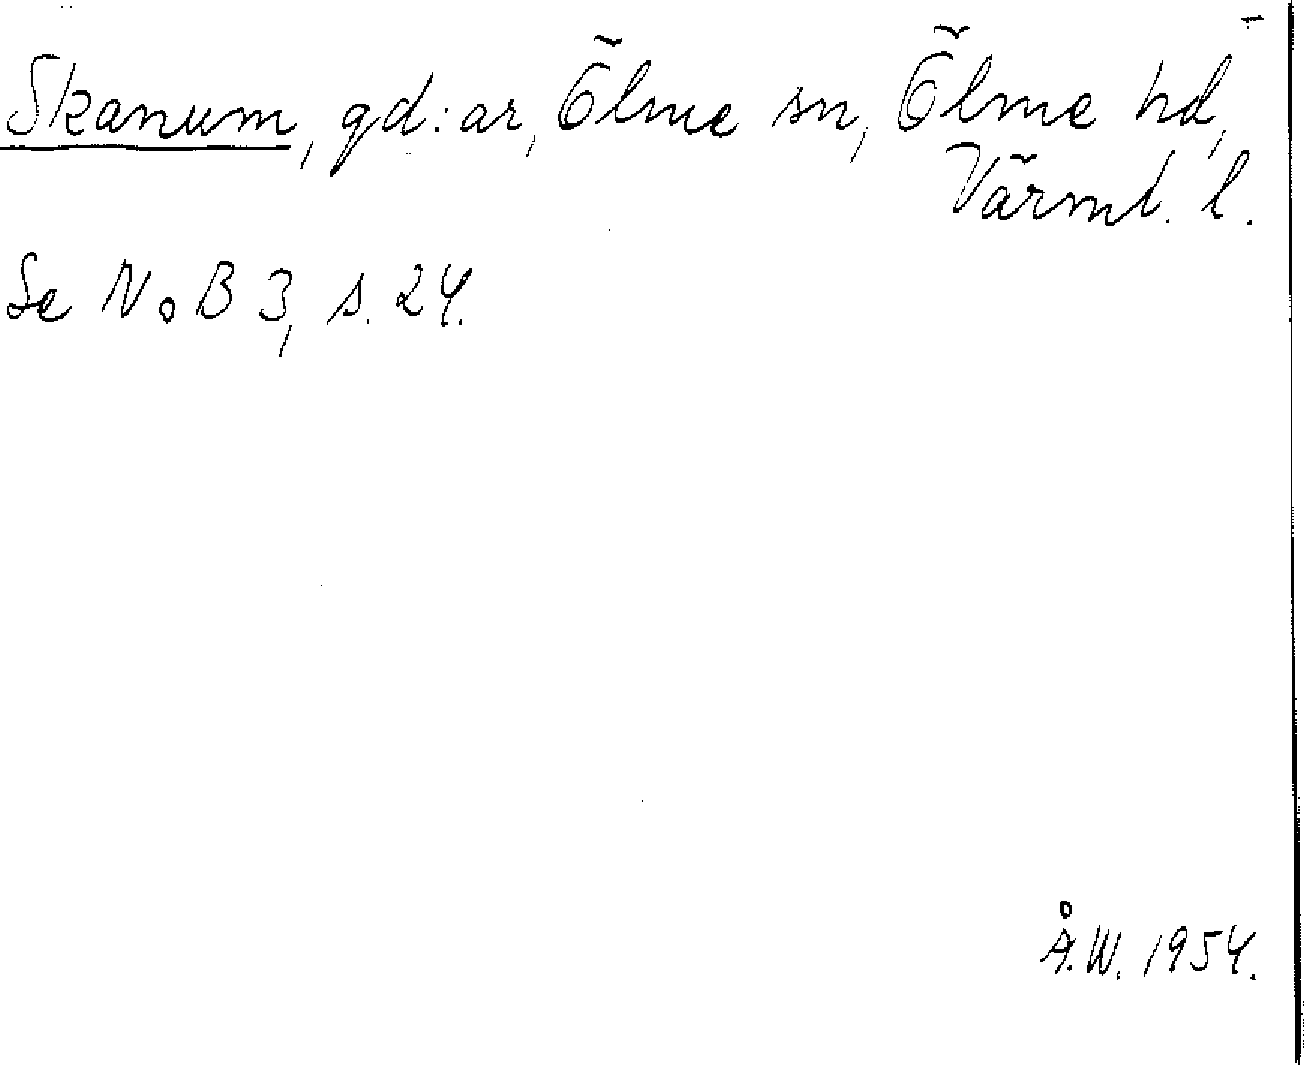 Skanum, gd:ar, Ölme sn, Ölme hd,
Värml. l.
Se NoB 3, s. 24.
Å.W. 1954.